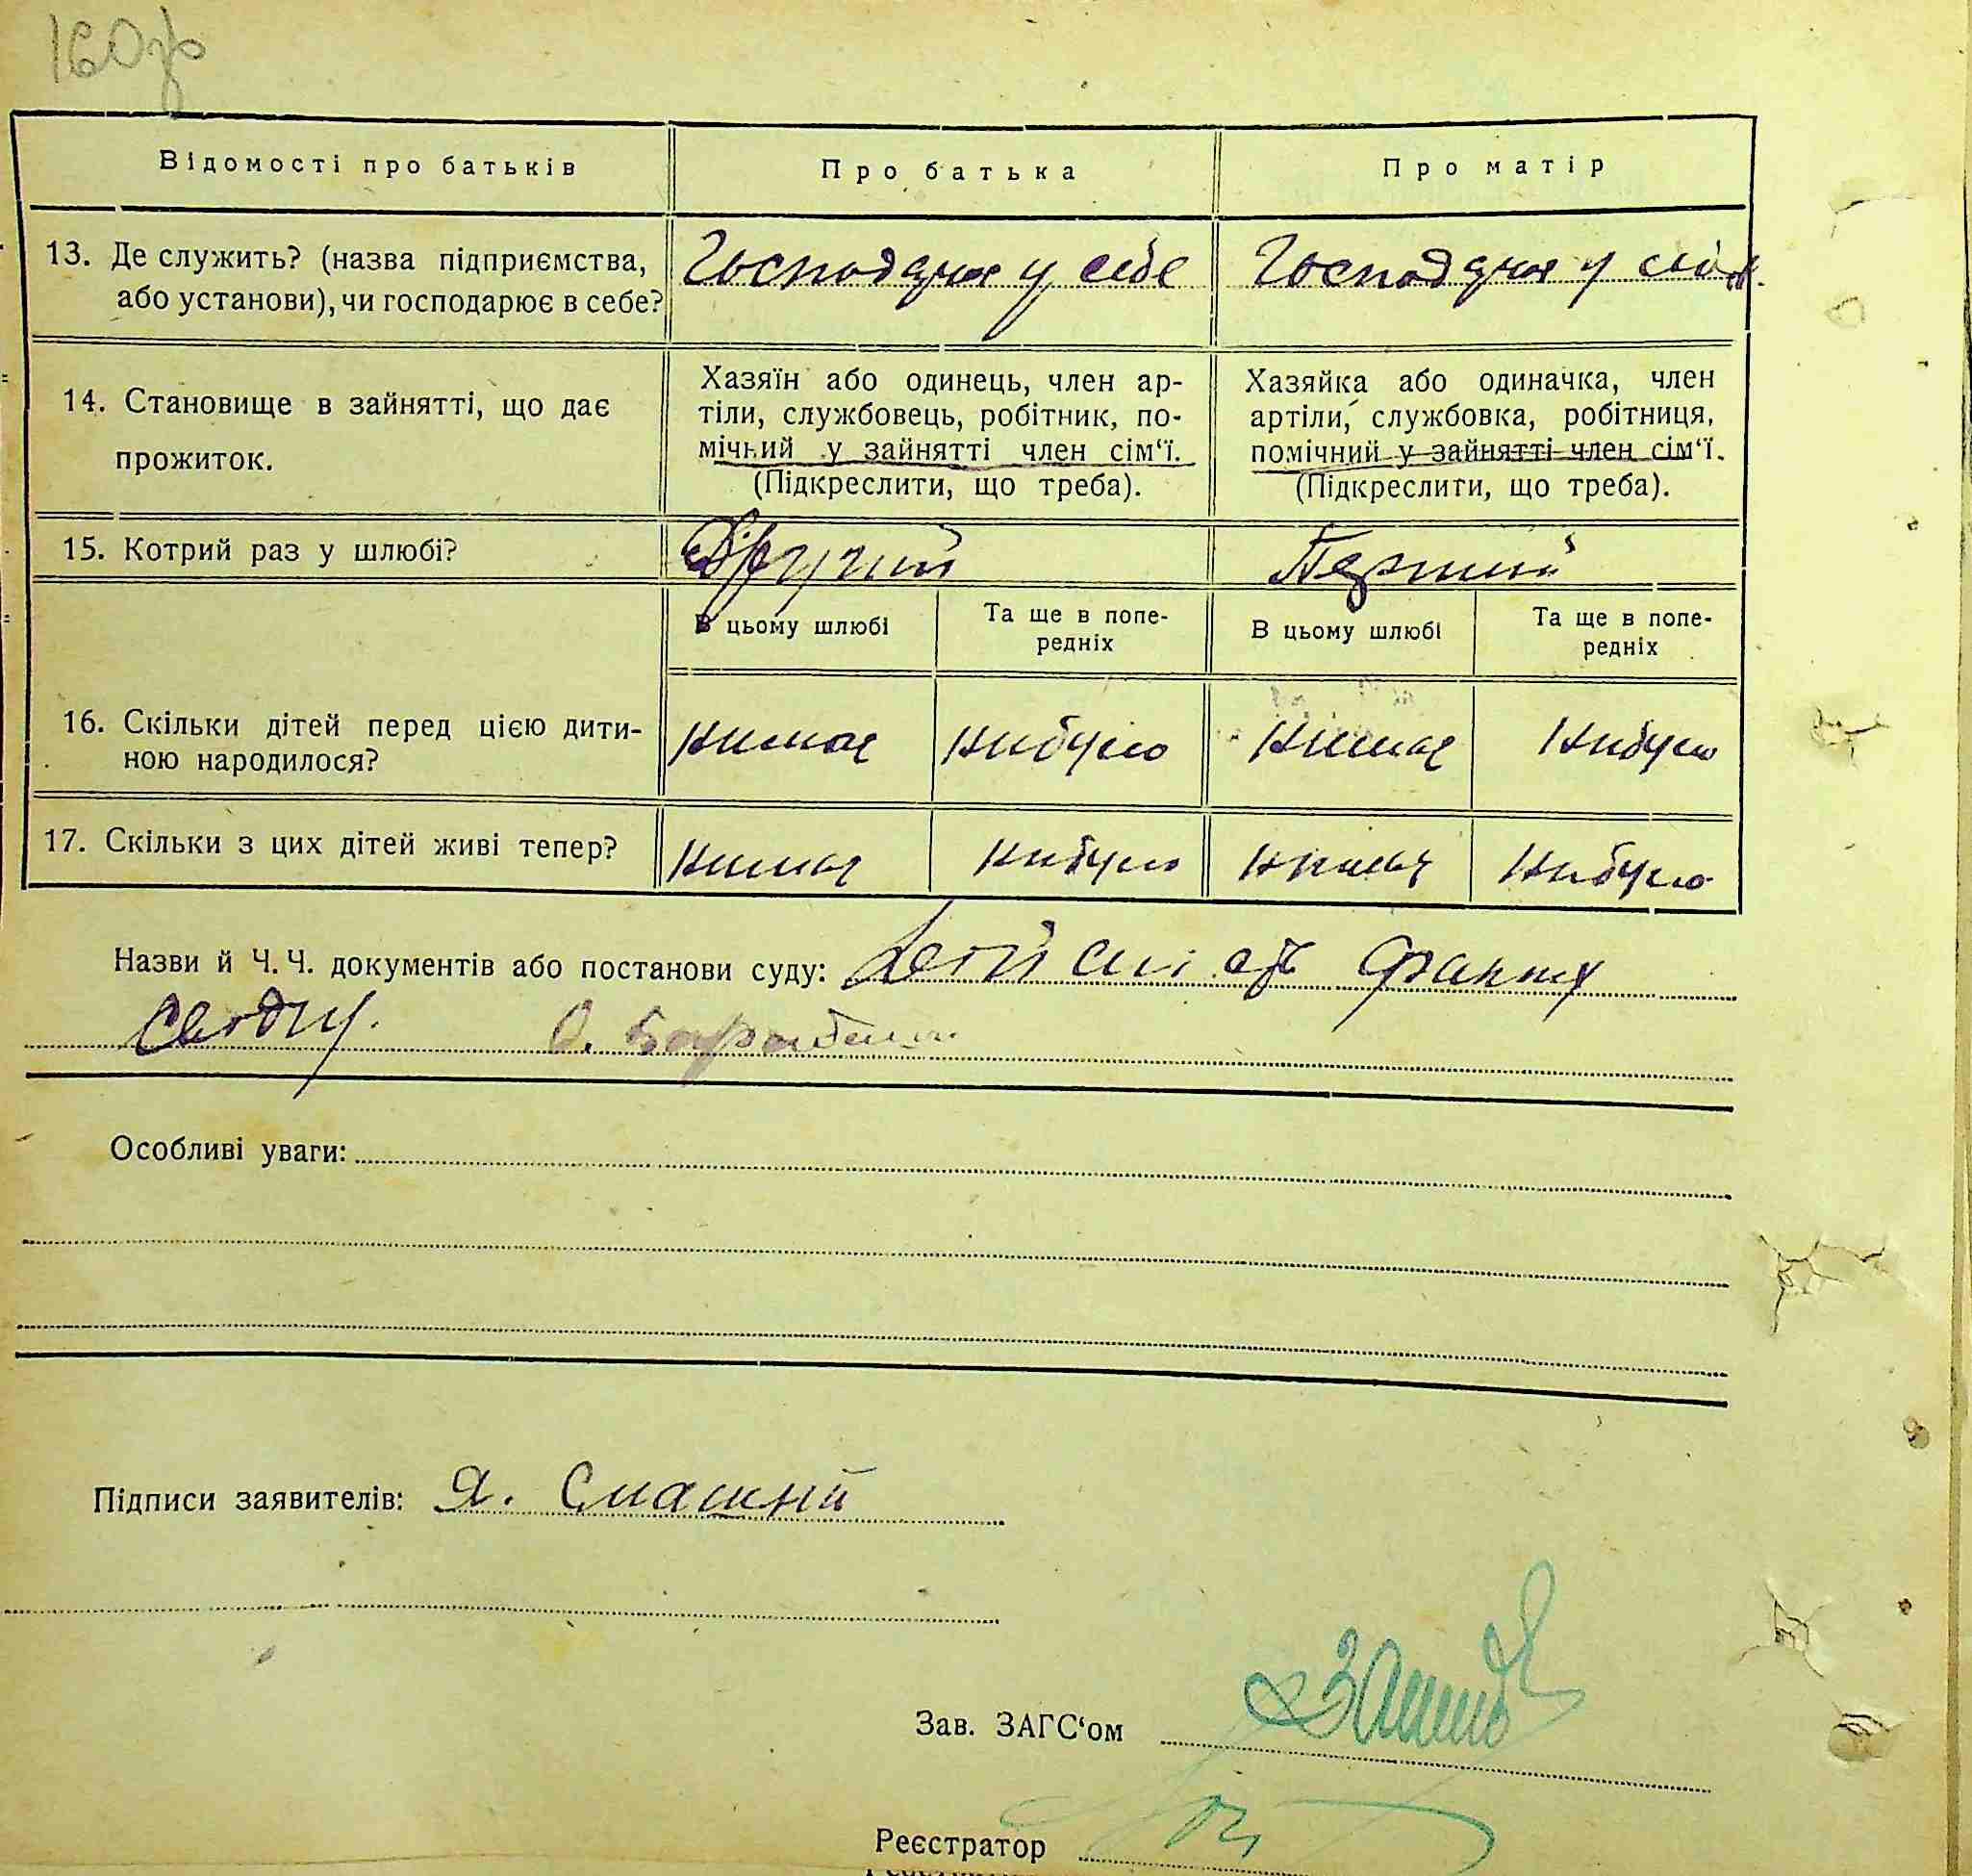 Відомості про батьків
Про батька
Про матір
13. Де служить? (назва підприємства,
або установи), чи господарює в себе?
у себе
у
14. Становище в зайнятті, що дає
прожиток.
Хазяїн або одинець, член ар-
тіли, службовець, робітник, по-
мічний у зайнятті член сім‘ї.
(Підкреслити, що треба).
Хазяйка або одиначка, член
артіли, службовка, робітниця,
помічний у зайнятті член сім‘ї.
(Підкреслити, що треба).
15. Котрий раз у шлюбі?
Другий
Перший
В цьому шлюбі
Та ще в попе-
редніх
В цьому шлюбі
Та ще в попе-
редніх
16. Скільки дітей перед цією дити-
ною народилося?
нимае
нибуло
нимае
нибуло
17. Скільки з цих дітей живі тепер?
нимае
нибуло
нимае
нибуло
Назви й Ч. Ч. документів або постанови суду:
Особливі уваги:
Підписи заявителів: Я. Смашний
Зав. ЗАГС‘ом
Реєстратор